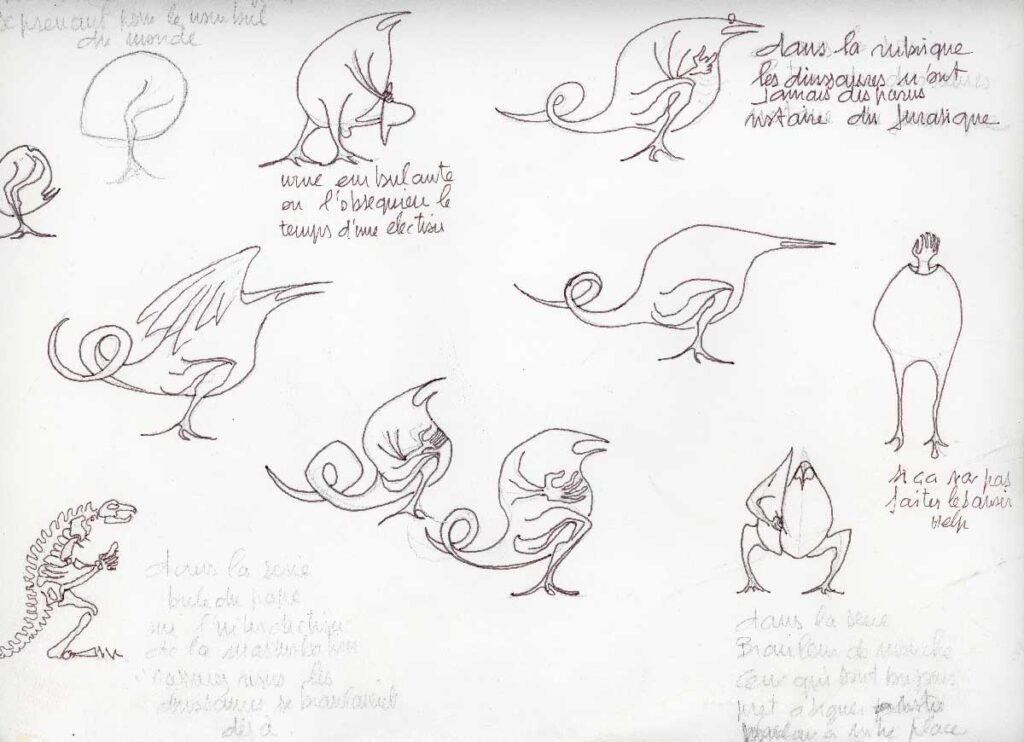 se prenant pour le nombril
du monde
dans la rubrique
les dinosaures n'ont
jamais disparus
histoire du Jurasique
urne embulante
ou l'obsequieu le
temps d'une election
si ça va pas
faites le savoir
Help
dans la serie
bule du pape
sur l'interdiction
de la masturbation
les
dinosaures se branlaient
déjà
dans la serie
Branleur de manche
ceux qui sont toujours
pret a
a votre place